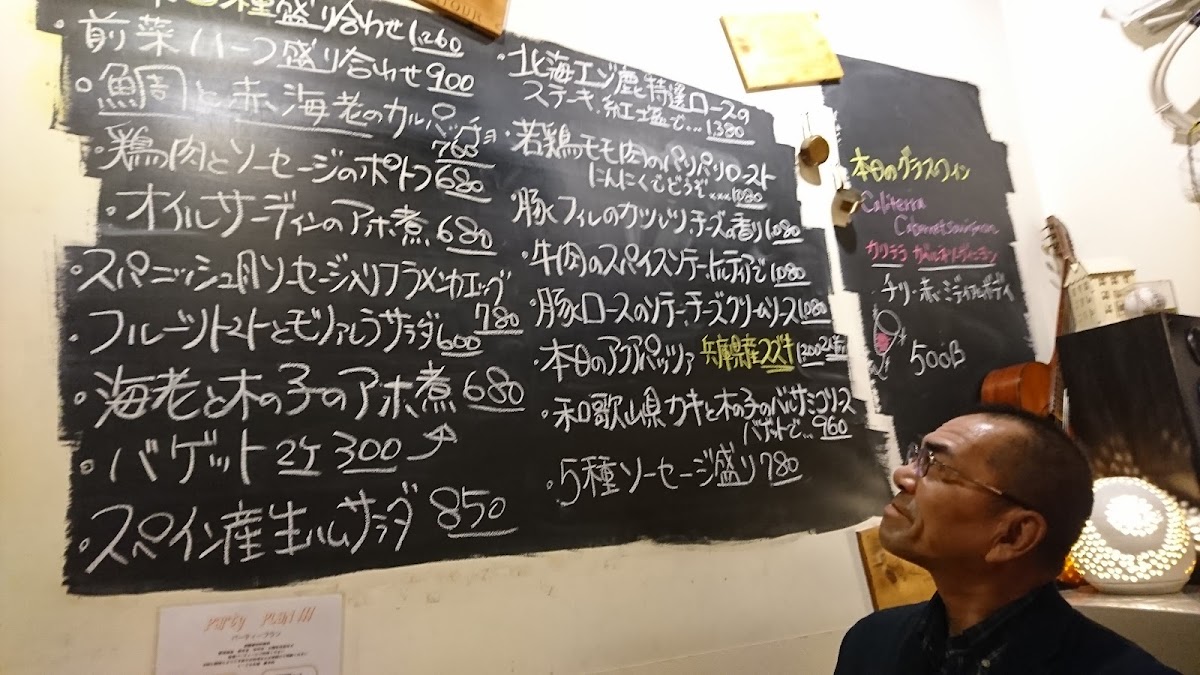 種盛り合わせ 1,260
・前菜ハーフ盛り合わせ 900
○鯛と赤海老のカルパッチョ
760
・鶏肉とソーセージのポトフ 680
・オイルサーディンのアホ煮 680
・スパニッシュ風ソーセージ入りフラメンカエッグ
780
・フルーツトマトとモッツァレラサラダ 600
・海老と木の子のアホ煮 680
・バゲット2ケ 300
・スペイン産生ハムサラダ 850
・北海エゾ鹿特選ロースの
ステーキ、紅塩で… 1,380
・若鶏モモ肉のパリパリロースト
にんにくでどうぞ… 1,080
・豚ヒレのカツレツ、チーズの香り 1,080
・牛肉のスパイスソテートルティアで 1,080
・豚ロースのソテーチーズクリームソース 1,080
・本日のアクアパッツァ 兵庫県産スズキ 1,200
・和歌山県カキと木の子のバルサミコソース
バゲットで… 960
・5種ソーセージ盛り 780
本日のグラスワイン
Caliterra
Cabernet Sauvignon
カリテラ カベルネ・ソーヴィニヨン
チリ・赤・ミディアムボディ
500
Party Plan!!!
パーティープラン